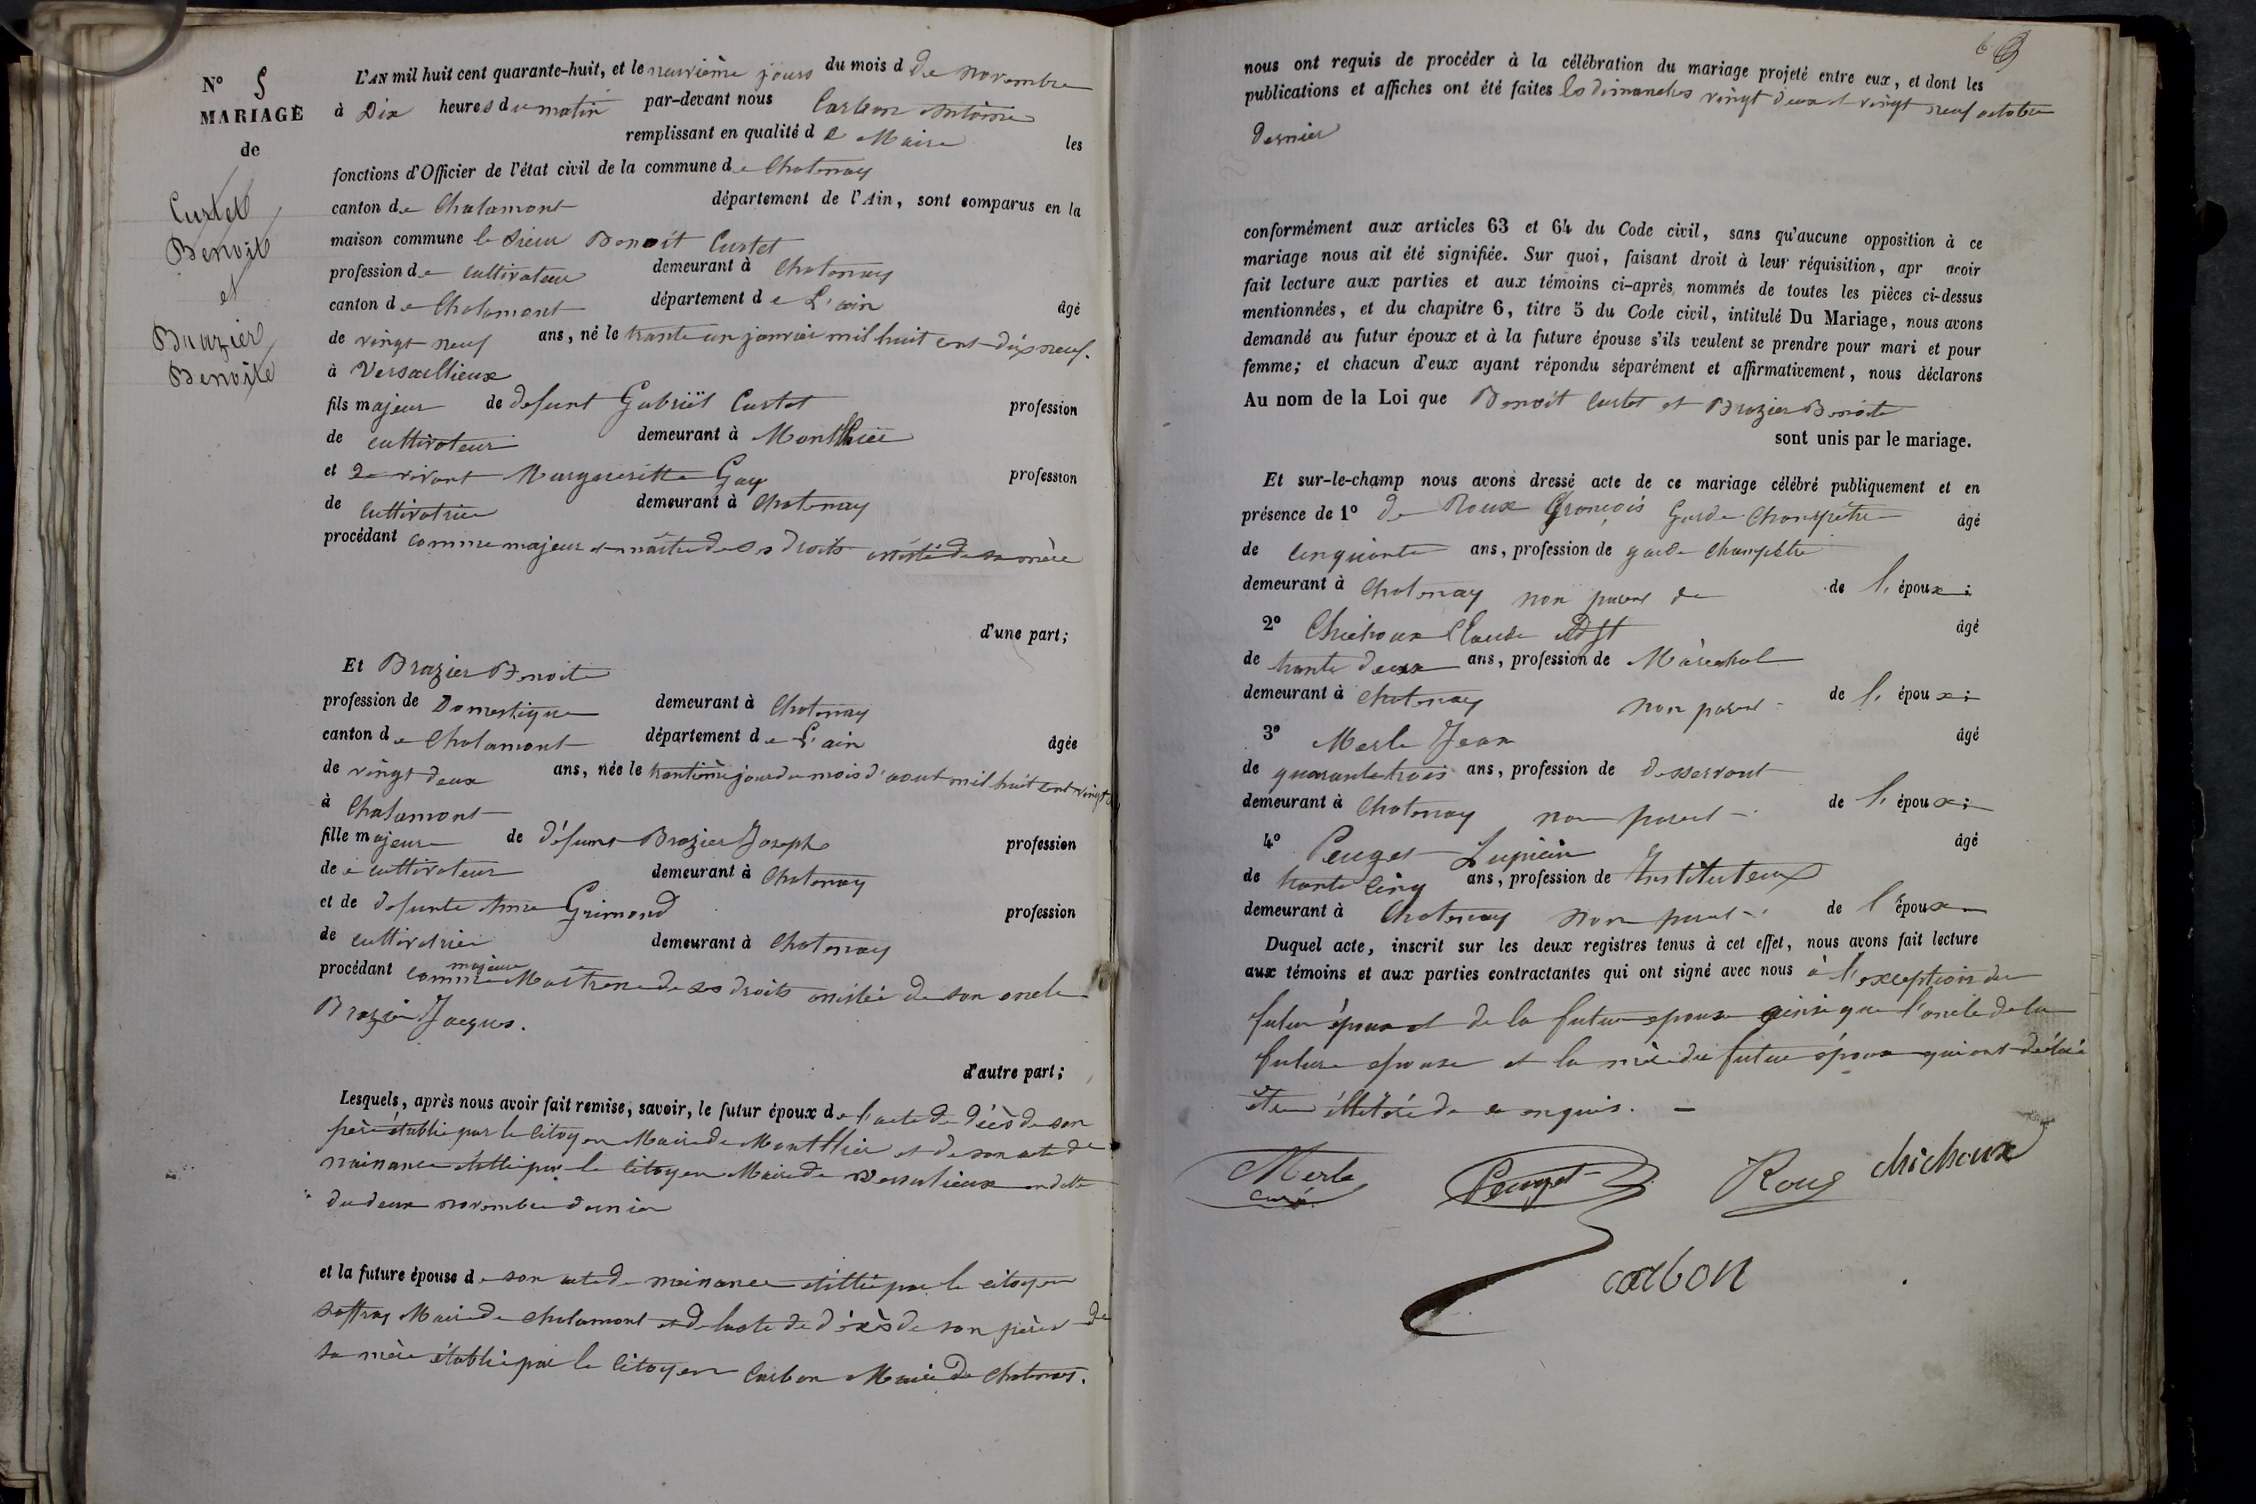 N° 5
MARIAGE
de
Curtet
Benoit
et
Brazier
Benoite
L'AN mil huit cent quarante-huit, et le neuvième jours du mois d de novembre
à Dix heures du matin par-devant nous Carbon Antoine
remplissant en qualité d e Maire les
fonctions d'Officier de l'état civil de la commune de Chatenay
canton de Chalamont département de l'Ain, sont comparus en la
maison commune le Sieur Benoit Curtet
profession de cultivateur demeurant à Chatenay
canton de Chalamont département de L'ain âgé
de vingt neuf ans, né le trante un janvier mil huit cent dix neuf.
à Versaillieux
fils majeur de defunt Gabriël Curtet profession
de cultivateur demeurant à Monthieu
et de vivant Margueritte Gay profession
de cultivatrice demeurant à Chatenay
procédant comme majeur et maître de ses droits assisté de sa mère
d'une part;
Et Brazier Benoite
profession de Domestique demeurant à Chatenay
canton de Chalamont département de L'ain âgée
de vingt deux ans, née le trantième jour du mois d'aout mil huit cent vingt
à Chalamont
fille majeure de défunt Brazier Joseph profession
de cultivateur demeurant à Chatenay
et de defunte Anne Grimond profession
de cultivatrice demeurant à Chatenay
majeure
procédant comme Maitresse de ses droits assistée de son oncle
Brazier Jacques.
d'autre part;
Lesquels, après nous avoir fait remise, savoir, le futur époux de l'acte de décès de son
père établie par le citoyen Maire de Montthieu et de son acte de
naissance établie par le citoyen Maire de Versalieux en date
du deux novembre dernier
et la future épouse de son acte de naissance établie par le citoyen
Maire de Chalamont et de lacte de décès de son père et de
sa mère établie par le citoyen Carbon Maire de Chatenay.
nous ont requis de procéder à la célébration du mariage projeté entre eux, et dont les
publications et affiches ont été faites les dimanches vingt deux et vingt neuf octobre
dernier
conformément aux articles 63 et 64 du Code civil, sans qu'aucune opposition à ce
mariage nous ait été signifiée. Sur quoi, faisant droit à leur réquisition, apr avoir
fait lecture aux parties et aux témoins ci-après nommés de toutes les pièces ci-dessus
mentionnées, et du chapitre 6, titre 5 du Code civil, intitulé Du Mariage, nous avons
demandé au futur époux et à la future épouse s'ils veulent se prendre pour mari et pour
femme; et chacun d'eux ayant répondu séparément et affirmativement, nous déclarons
Au nom de la Loi que Benoit Curtet et Brazier Benoite
sont unis par le mariage.
Et sur-le-champ nous avons dressé acte de ce mariage célébré publiquement et en
présence de 1° de Roux François Garde Champêtre âgé
de cinquante ans, profession de garde champêtre
demeurant à Chatenay non parent de de l' époux;
2° Chichoux Claude âgé
de trante deux ans, profession de Maréchal
demeurant à Chatenay non parent de l' époux;
3° Merle Jean âgé
de quarante trois ans, profession de desservant
demeurant à Chatenay non parent de l' époux;
4° Peuget Lupicin âgé
de trante cinq ans, profession de Instituteur
demeurant à Chatenay non parent de l' époux
Duquel acte, inscrit sur les deux registres tenus à cet effet, nous avons fait lecture
aux témoins et aux parties contractantes qui ont signé avec nous à l'exception du
futur époux et de la future épouse ainsi que l'oncle de la
future épouse et la mère du futur époux qui ont déclaré
être illétéré de ce enquis.
Merle
curé
Peuget
Roux
chichoux
carbon